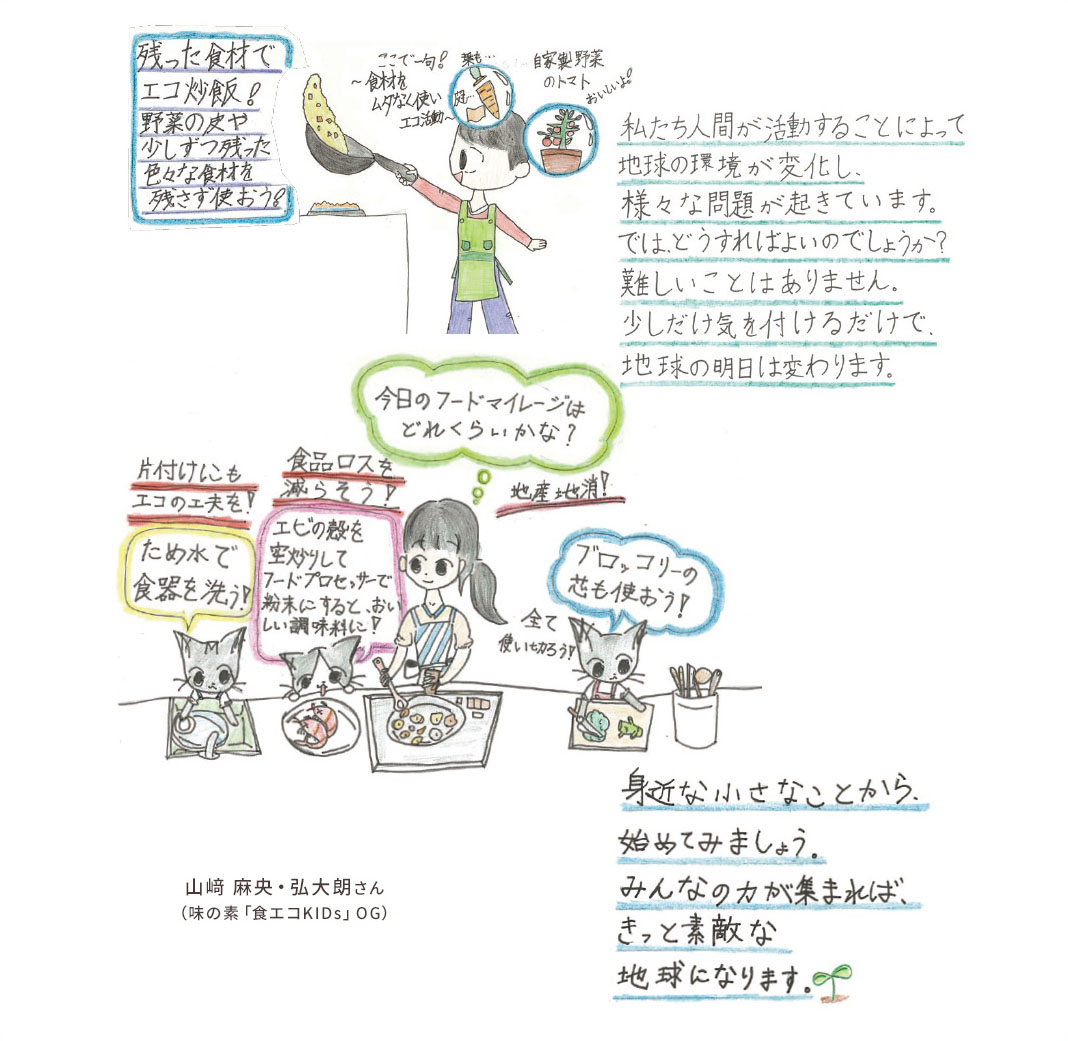 残った食材で
エコ炒飯!
野菜の皮や
少しずつ残った
色々な食材を
残さず使おう!
ここで一句!
~食材を
ムダなく使い
エコ活動~
葉も…
皮…
自家製野菜
のトマト
おいしいよ!
私たち人間が活動することによって
地球の環境が変化し、
様々な問題が起きています。
では、どうすればよいのでしょうか?
難しいことはありません。
少しだけ気を付けるだけで、
地球の明日は変わります。
今日のフードマイレージは
どれくらいかな?
片付けにも
エコの工夫を!
食品ロスを
減らそう!
地産地消!
ため水で
食器を洗う!
エビの殻を
空炒りして
フードプロセッサーで
粉末にすると、おい
しい調味料に!
全て
使い切ろう!
ブロッコリーの
芯も使おう!
身近な小さなことから、
始めてみましょう。
みんなの力が集まれば、
きっと素敵な
地球になります。
山﨑 麻央・弘大朗さん
(味の素「食エコKIDs」OG)